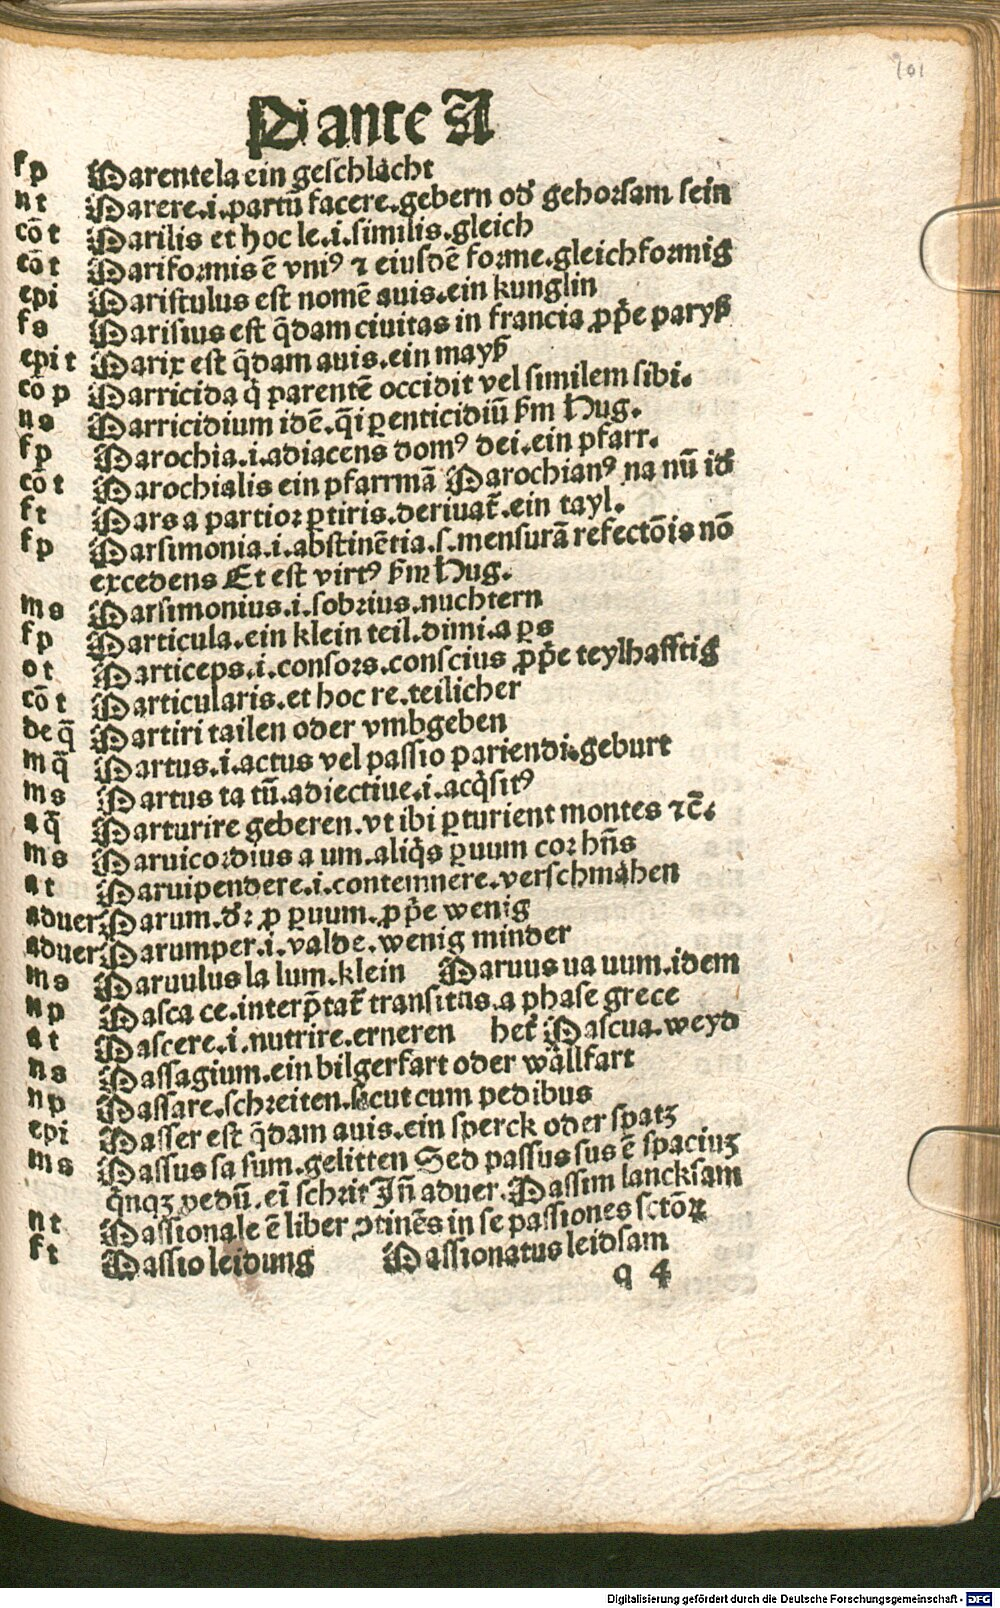 101
P ante A
f p Parentela ein geschlächt
n t Parere.i.partū facere.gebern od̓ gehorsam sein
cō t Parilis et hoc le.i.similis.gleich
cō t Pariformis ē vniꝰ ⁊ eiusdē forme.gleichformig
epi Paristulus est nomē auis.ein kunglin
f s Parisius est q̄dam ciuitas in francia ꝓp̄e paryß
epi t Parix est q̄dam auis.ein mayß
cō p Parricida q̇ parentē occidit vel similem sibi.
n s Parricidium idē.q̄i ꝑenticidiū ẜm Hug.
f p Parochia.i.adiacens domꝰ dei.ein pfarr.
cō t Parochialis ein pfarrmā Parochianꝰ na nū id̓
f t Pars a partior ꝑtiris.deriuat̄.ein tayl.
f p Parsimonia.i.abstinētia.s.mensurā refectōis nō
excedens Et est virtꝰ ẜm Hug.
m s Parsimonius.i.sobrius.nuchtern
f p Particula.ein klein teil.dimi.a ꝑs
o t Particeps.i.consors.conscius ꝓp̄e teylhafftig
cō t Particularis.et hoc re.teilicher
de q̄ Partiri tailen oder vmbgeben
m q̄ Partus.i.actus vel passio pariendi.geburt
m s Partus ta tū.adiectiue.i.acq̇sitꝰ
a q̄ Parturire geberen.vt ibi ꝑturient montes ⁊c̄.
m s Paruicordius a um.aliq̇s ꝑuum cor hn̄s
a t Paruipendere.i.contemnere.verschmähen
aduer Parum.d̓r ꝓ ꝑuum.ꝓp̄e wenig
aduer Parumper.i.valde.wenig minder
m s Paruulus la lum.klein Paruus ua uum.idem
n p Pasca ce.interp̄tat̄ transitus.a phase grece
a t Pascere.i.nutrire.erneren het̄ Pascua.weyd
n s Passagium.ein bilgerfart oder wällfart
n p Passare.schreiten.sicut cum pedibus
epi Passer est q̄dam auis.ein sperck oder spatz
m s Passus sa sum.gelitten Sed passus sus ē spaciuꝫ
q̇nqꝫ pedū.ei schrit Jn̄ aduer.Passim lancksam
n t Passionale ē liber ꝯtinēs in se passiones sctōꝝ
f t Passio leidung Passionatus leidsam
q 4
Digitalisierung gefördert durch die Deutsche Forschungsgemeinschaft - DFG